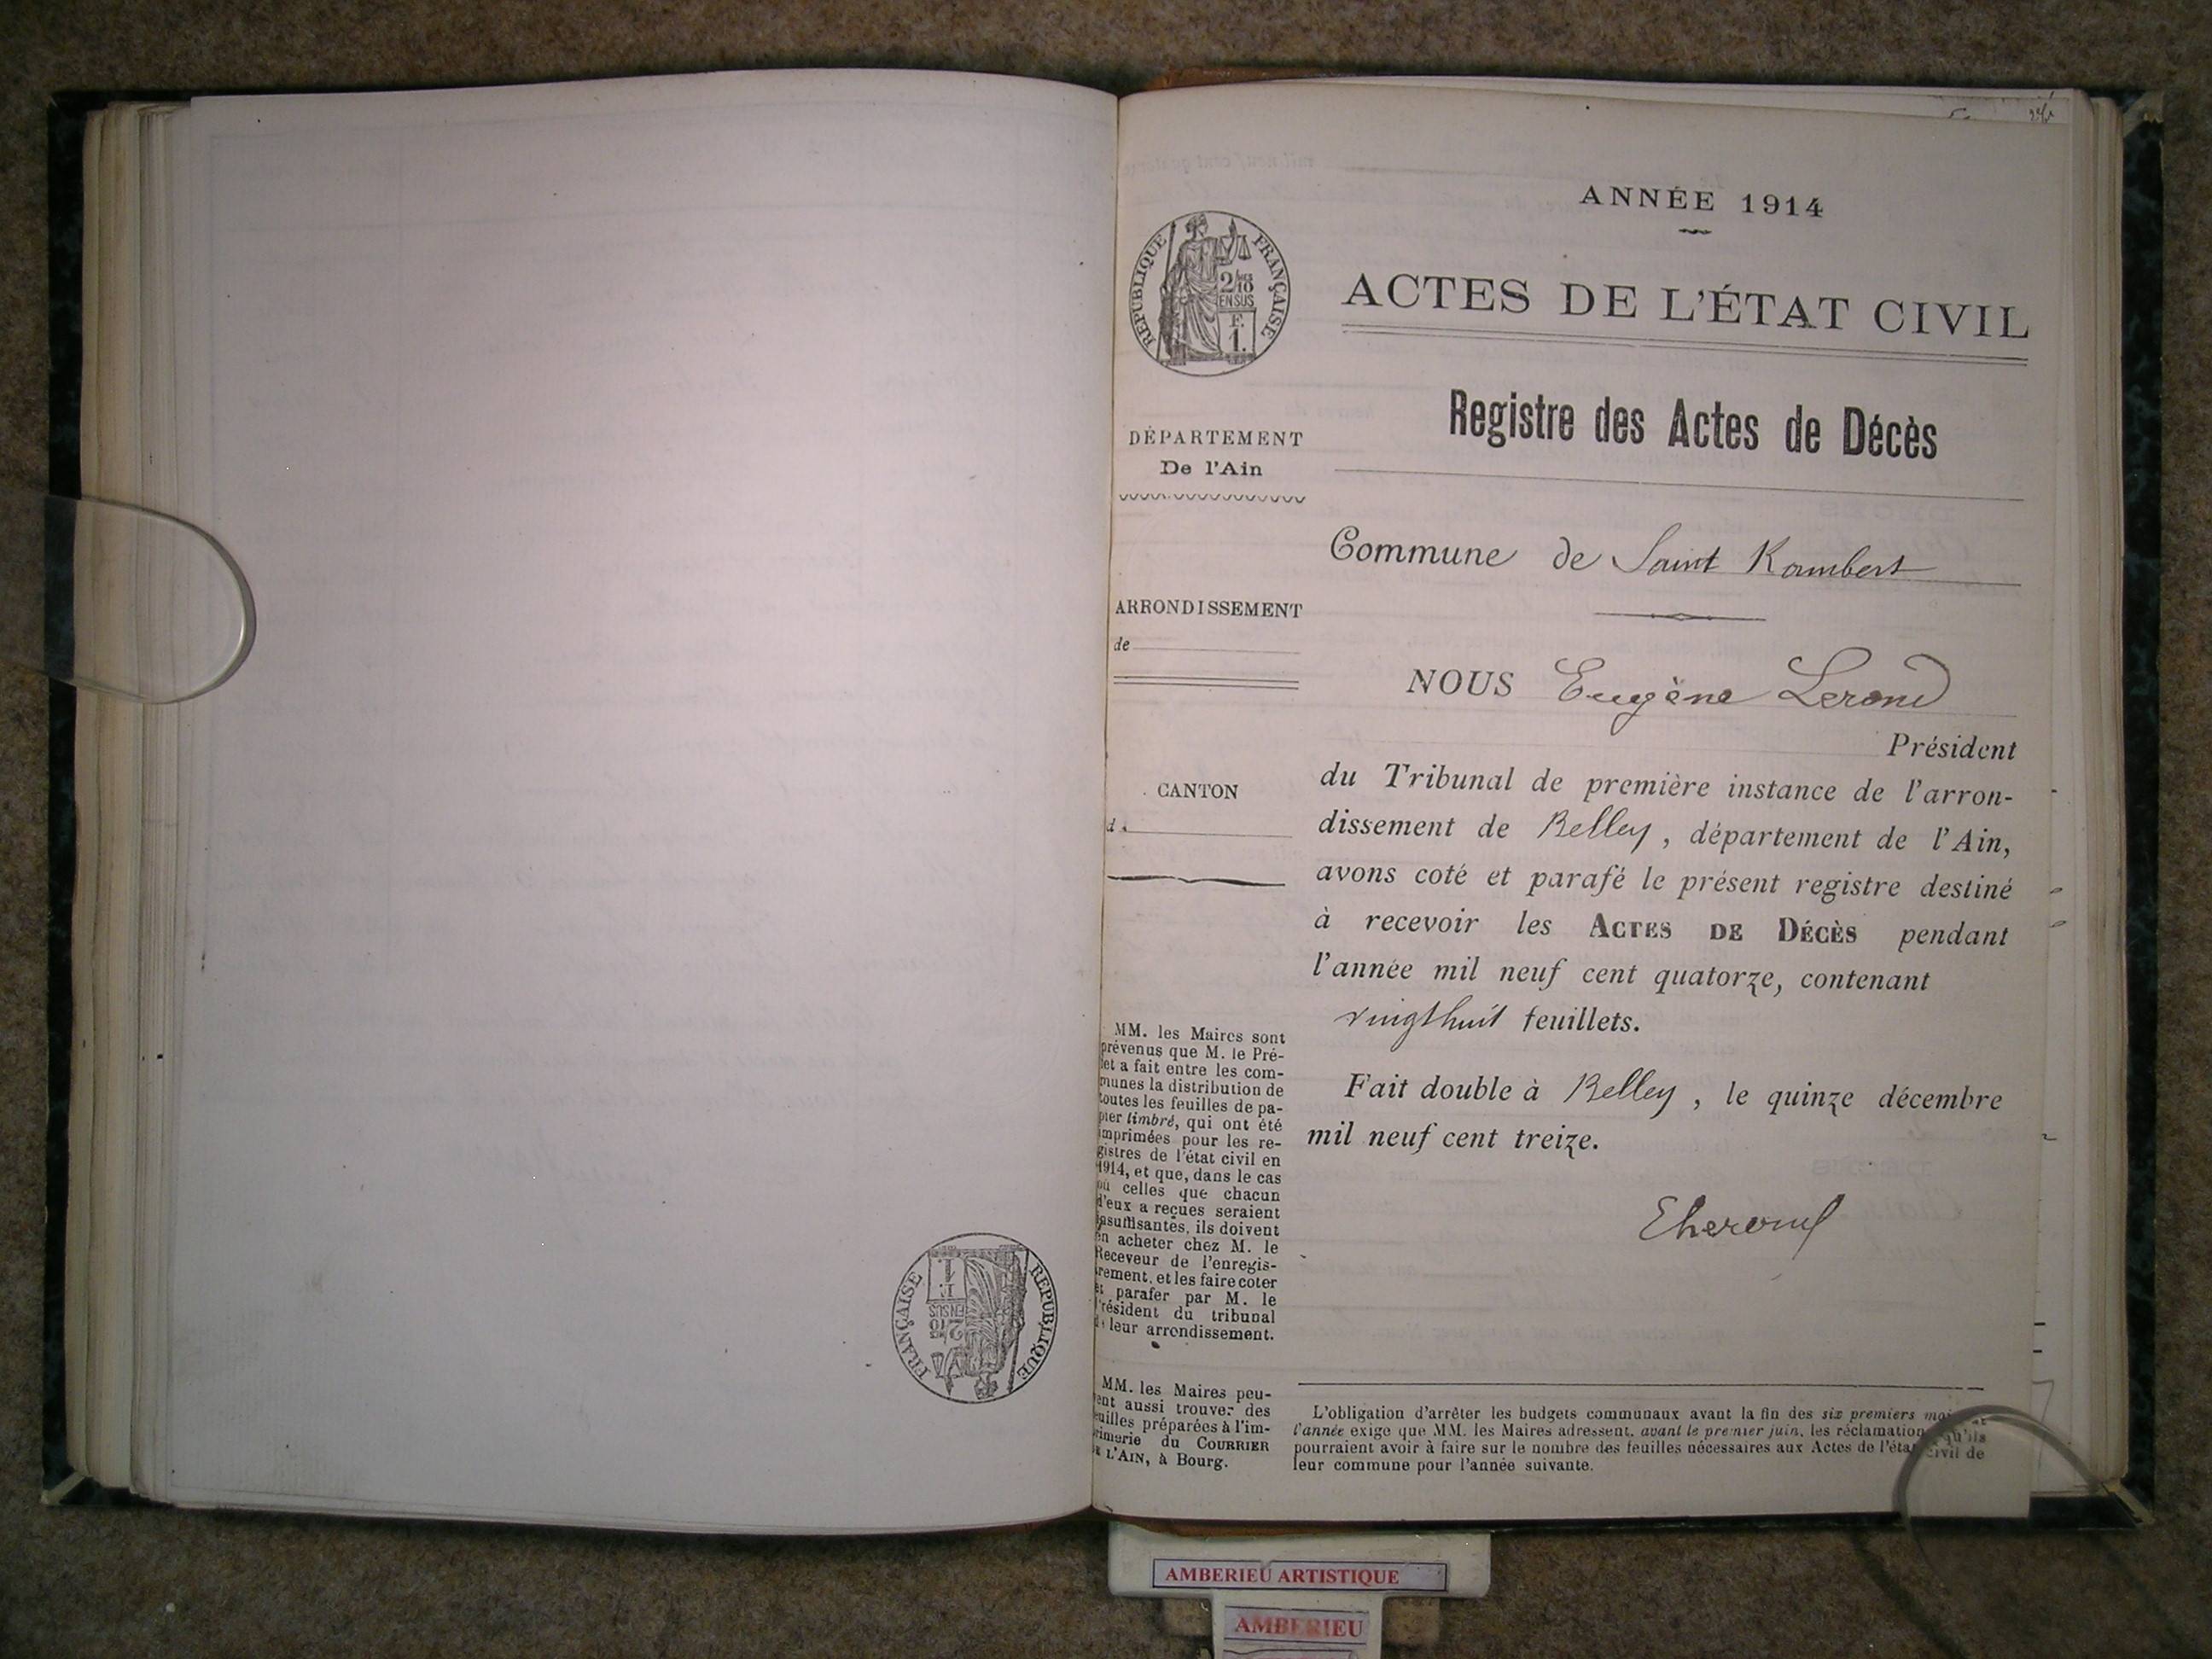 ANNÉE 1914
ACTES DE L'ÉTAT CIVIL
Registre des Actes de Décès
Commune de Saint Rambert
NOUS Eugène
Président
du Tribunal de première instance de l'arron-
dissement de Belley, département de l'Ain,
avons coté et parafé le présent registre destiné
à recevoir les ACTES DE DÉCÈS pendant
l'année mil neuf cent quatorze, contenant
vingthuit feuillets.
Fait double à Belley, le quinze décembre
mil neuf cent treize.
RÉPUBLIQUE FRANÇAISE
2/10
EN SUS
F.
1.
DÉPARTEMENT
De l'Ain
ARRONDISSEMENT
de
CANTON
d
MM. les Maires sont
prévenus que M. le Pré-
fet a fait entre les com-
munes la distribution de
toutes les feuilles de pa-
pier timbré, qui ont été
imprimées pour les re-
gistres de l'état civil en
1914, et que, dans le cas
où celles que chacun
d'eux a reçues seraient
insuffisantes, ils doivent
en acheter chez M. le
Receveur de l'enregis-
trement, et les faire coter
et parafer par M. le
Président du tribunal
de leur arrondissement.
MM. les Maires peu-
vent aussi trouver des
feuilles préparées à l'im-
primerie du COURRIER
DE L'AIN, à Bourg.
L'obligation d'arrêter les budgets communaux avant la fin des six premiers mois
l'année exige que MM. les Maires adressent, avant le premier juin, les réclamations qu'ils
pourraient avoir à faire sur le nombre des feuilles nécessaires aux Actes de l'état civil de
leur commune pour l'année suivante.
RÉPUBLIQUE FRANÇAISE
2/10
EN SUS
F.
1.
AMBERIEU ARTISTIQUE
AMBERIEU